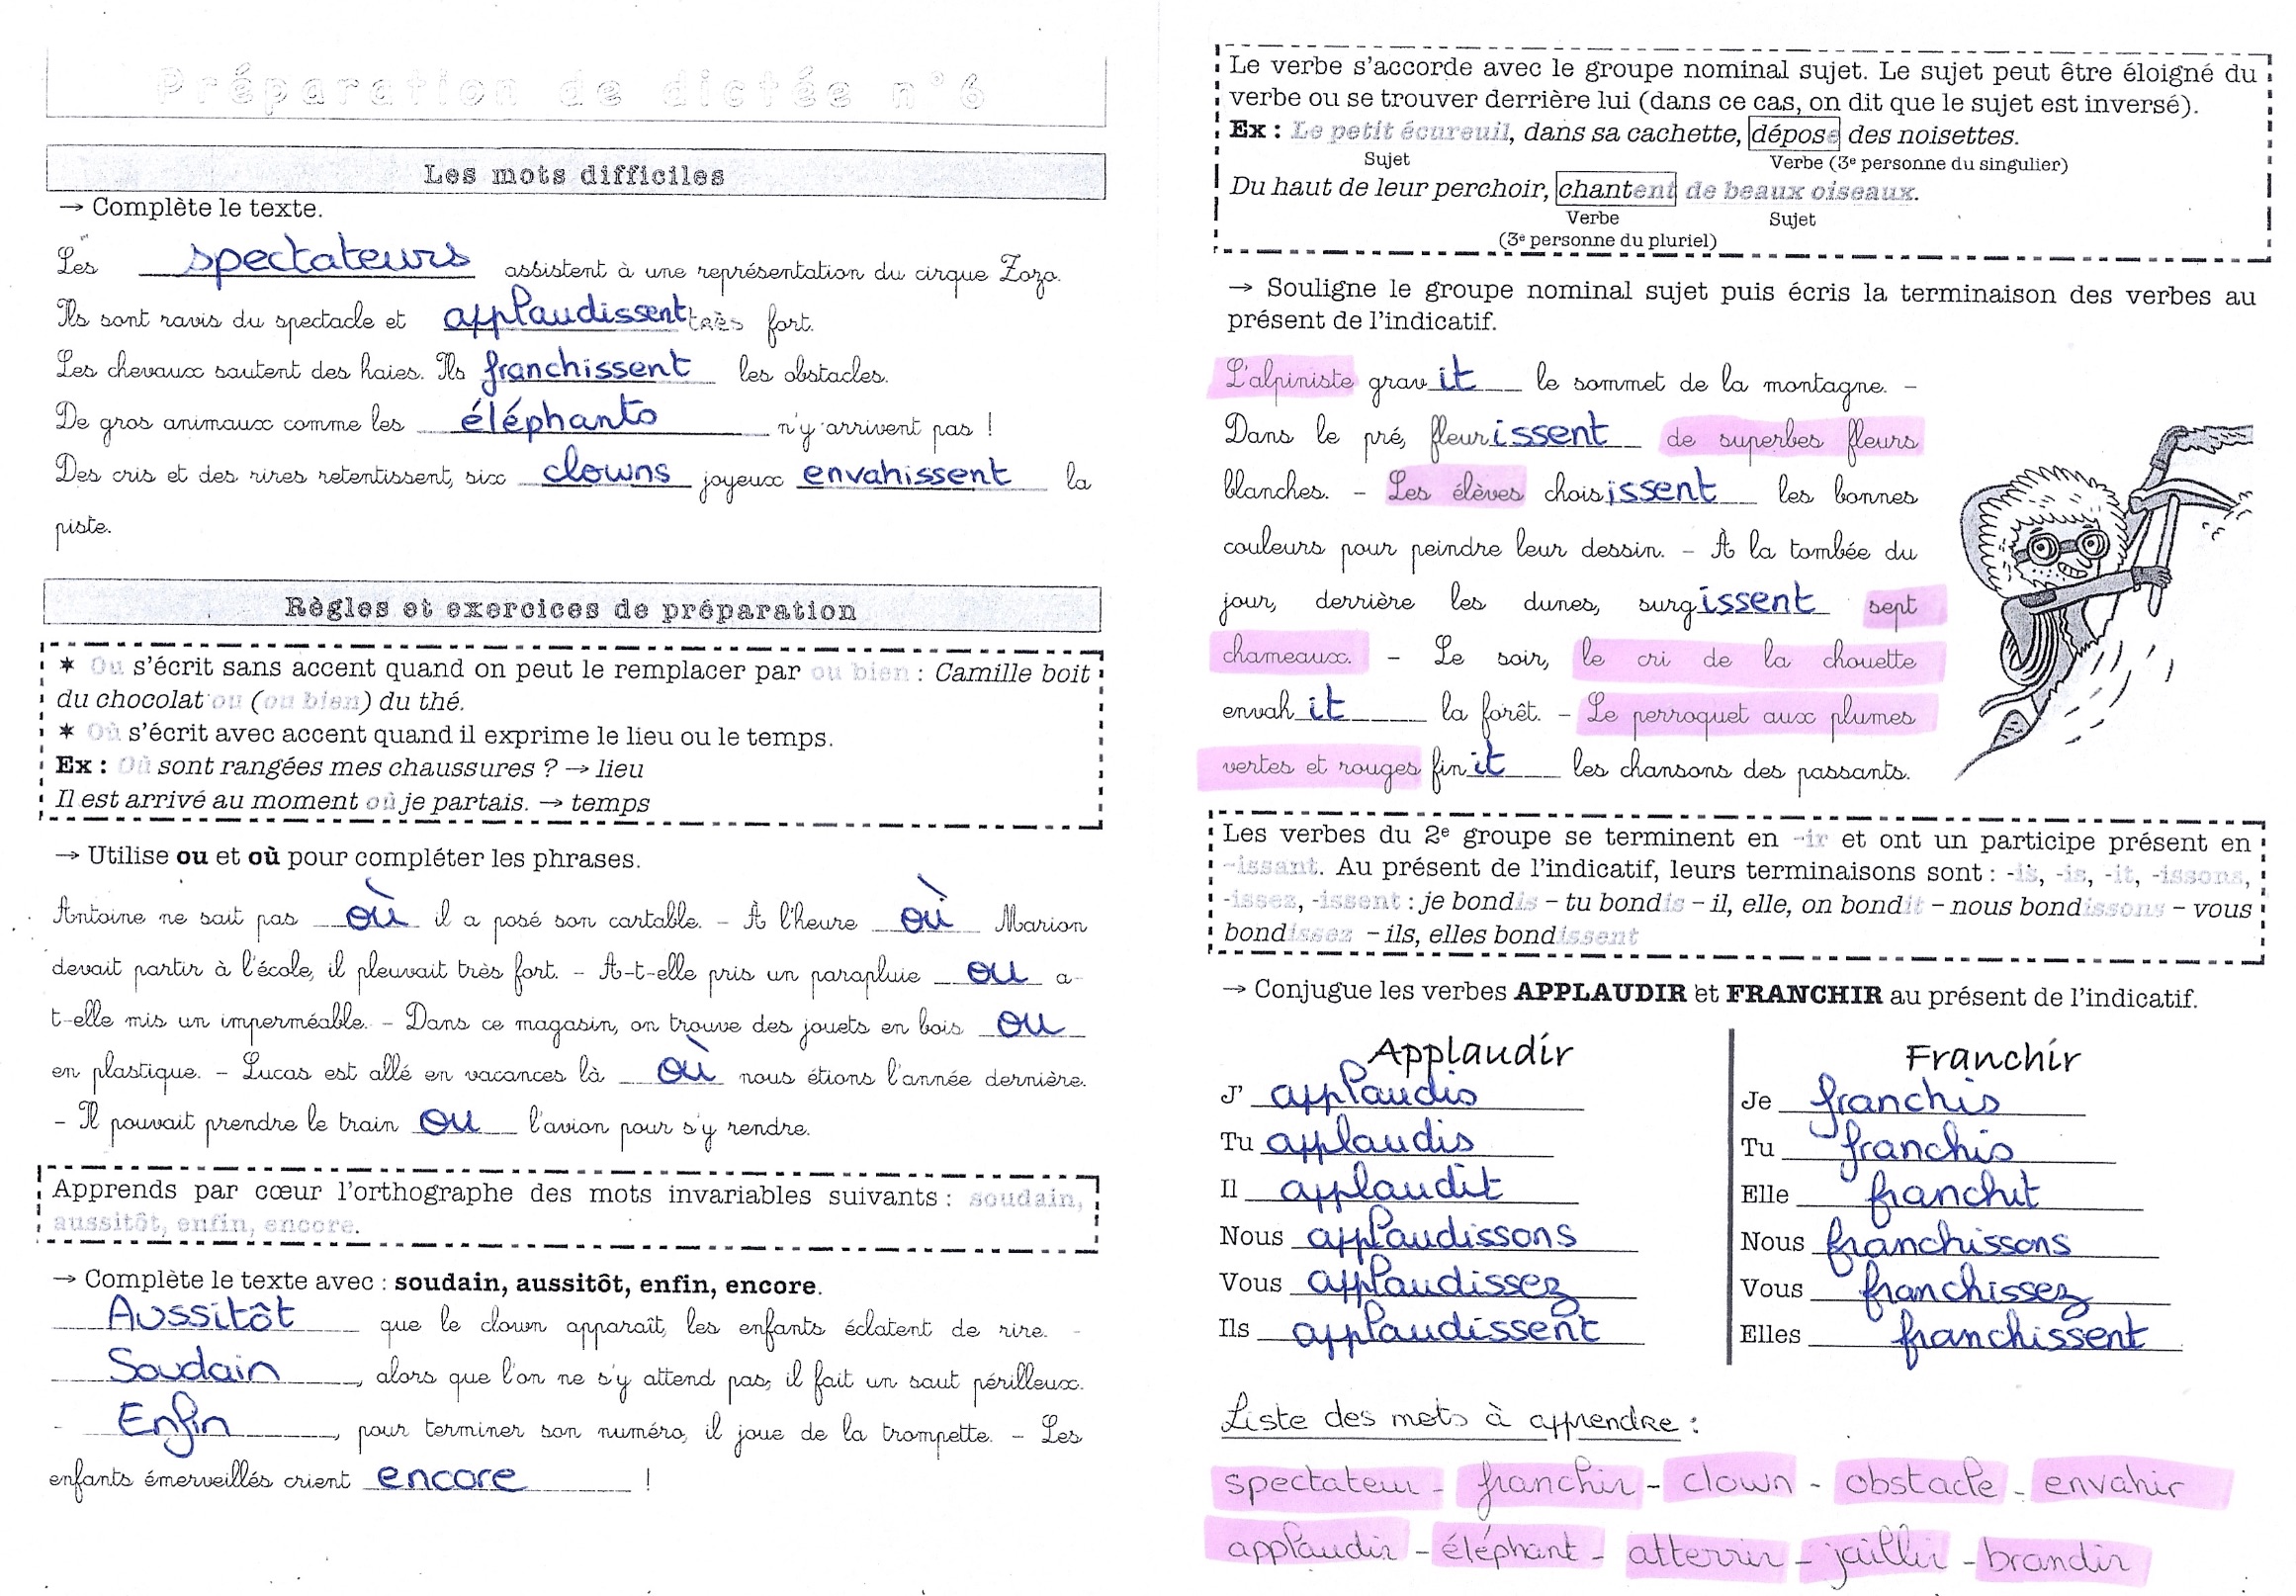 Préparation de dictée n°6
Les mots difficiles
→ Complète le texte.
Les spectateurs assistent à une représentation du cirque Zozo.
Ils sont ravis du spectacle et applaudissent très fort.
Les chevaux sautent des haies. Ils franchissent les obstacles.
De gros animaux comme les éléphants n'y arrivent pas !
Des cris et des rires retentissent, six clowns joyeux envahissent la
piste.
Règles et exercices de préparation
✶ Ou s'écrit sans accent quand on peut le remplacer par ou bien : Camille boit
du chocolat ou (ou bien) du thé.
✶ Où s'écrit avec accent quand il exprime le lieu ou le temps.
Ex : Où sont rangées mes chaussures ? → lieu
Il est arrivé au moment où je partais. → temps
→ Utilise ou et où pour compléter les phrases.
Antoine ne sait pas où il a posé son cartable. – À l'heure où Marion
devait partir à l'école, il pleuvait très fort. – A-t-elle pris un parapluie ou a-
t-elle mis un imperméable. – Dans ce magasin, on trouve des jouets en bois ou
en plastique. – Lucas est allé en vacances là où nous étions l'année dernière.
– Il pouvait prendre le train ou l'avion pour s'y rendre.
Apprends par cœur l'orthographe des mots invariables suivants : soudain,
aussitôt, enfin, encore.
→ Complète le texte avec : soudain, aussitôt, enfin, encore.
Aussitôt que le clown apparaît, les enfants éclatent de rire. –
Soudain, alors que l'on ne s'y attend pas, il fait un saut périlleux.
– Enfin, pour terminer son numéro, il joue de la trompette. – Les
enfants émerveillés crient encore !
Le verbe s'accorde avec le groupe nominal sujet. Le sujet peut être éloigné du
verbe ou se trouver derrière lui (dans ce cas, on dit que le sujet est inversé).
Ex : Le petit écureuil, dans sa cachette, dépose des noisettes.
Sujet Verbe (3e personne du singulier)
Du haut de leur perchoir, chantent de beaux oiseaux.
Verbe Sujet
(3e personne du pluriel)
→ Souligne le groupe nominal sujet puis écris la terminaison des verbes au
présent de l'indicatif.
L'alpiniste gravit le sommet de la montagne. –
Dans le pré, fleurissent de superbes fleurs
blanches. – Les élèves choisissent les bonnes
couleurs pour peindre leur dessin. – À la tombée du
jour, derrière les dunes, surgissent sept
chameaux. – Le soir, le cri de la chouette
envahit la forêt. – Le perroquet aux plumes
vertes et rouges finit les chansons des passants.
Les verbes du 2e groupe se terminent en -ir et ont un participe présent en
-issant. Au présent de l'indicatif, leurs terminaisons sont : -is, -is, -it, -issons,
-issez, -issent : je bondis – tu bondis – il, elle, on bondit – nous bondissons – vous
bondissez – ils, elles bondissent
→ Conjugue les verbes APPLAUDIR et FRANCHIR au présent de l'indicatif.
Applaudir
J' applaudis
Tu applaudis
Il applaudit
Nous applaudissons
Vous applaudissez
Ils applaudissent
Franchir
Je franchis
Tu franchis
Elle franchit
Nous franchissons
Vous franchissez
Elles franchissent
Liste des mots à apprendre :
spectateur – franchir – clown – obstacle – envahir
applaudir – éléphant – atterrir – jaillir – brandir